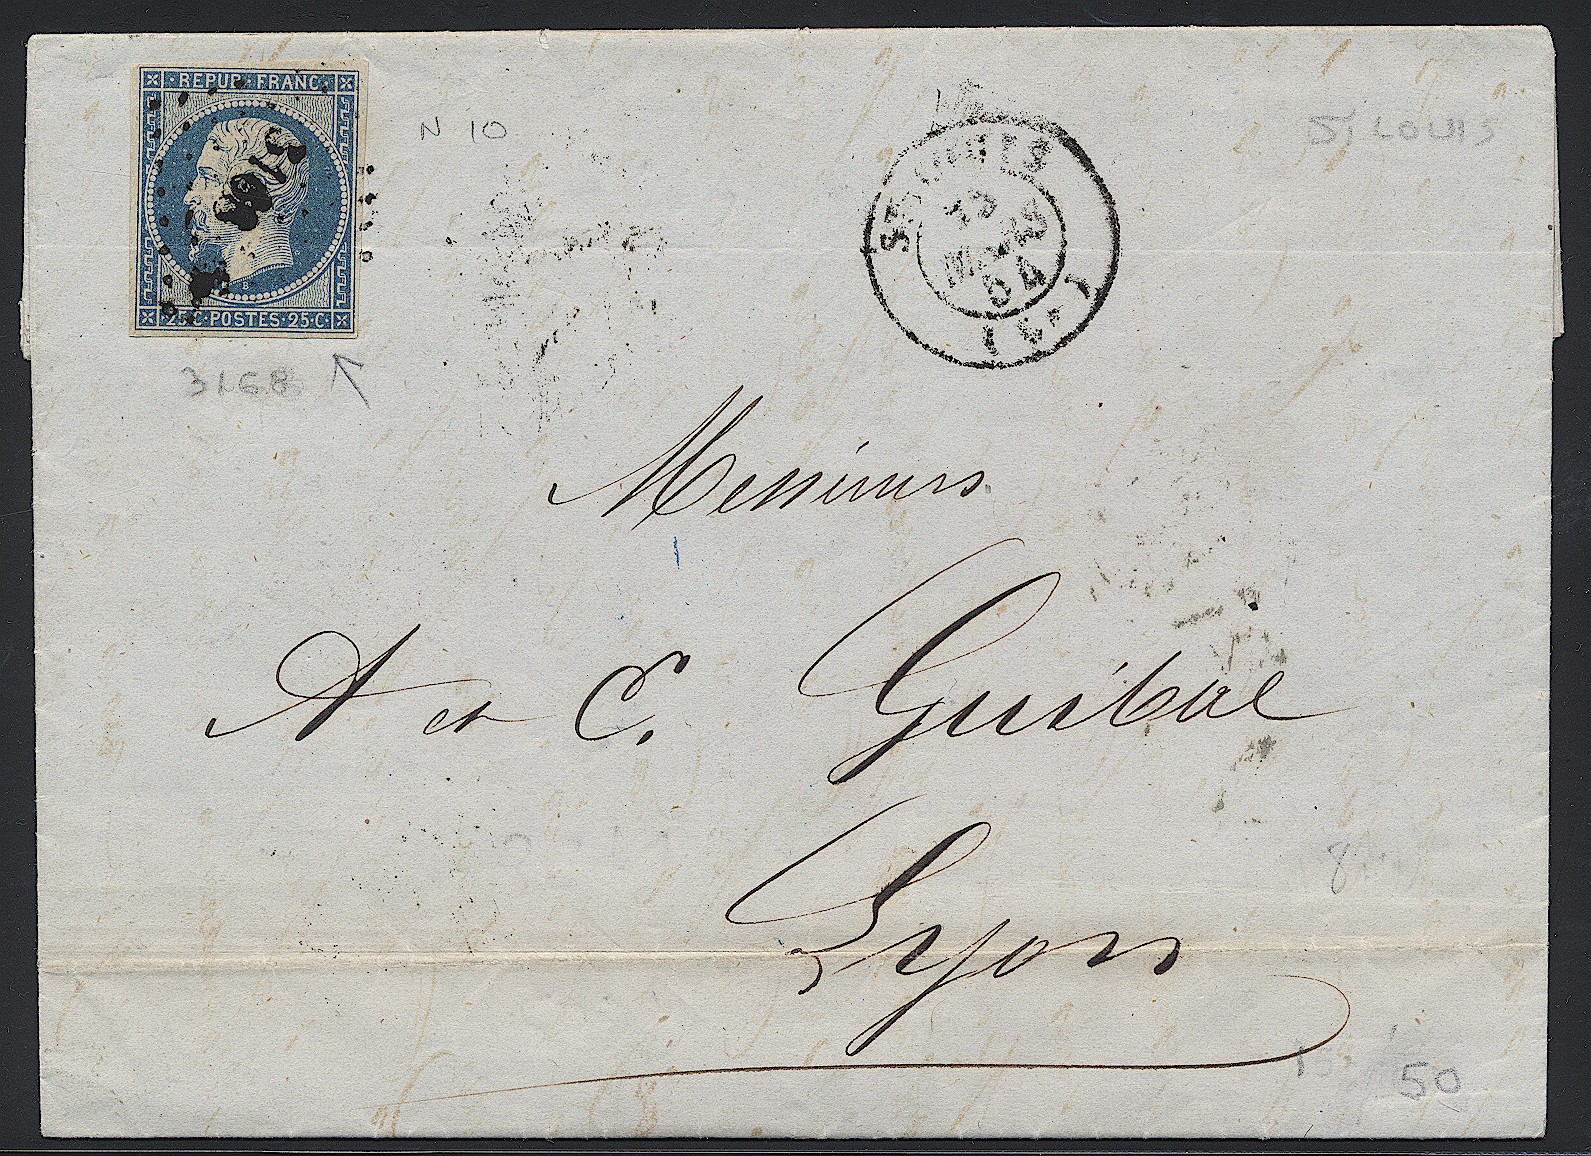 REPUB·FRANC·
B
·25·C·POSTES·25·C·
N 10
ST LOUIS
3168
ST LOUIS
MARS
54
Messieurs
A et C. Guibal
Lyon
8
50